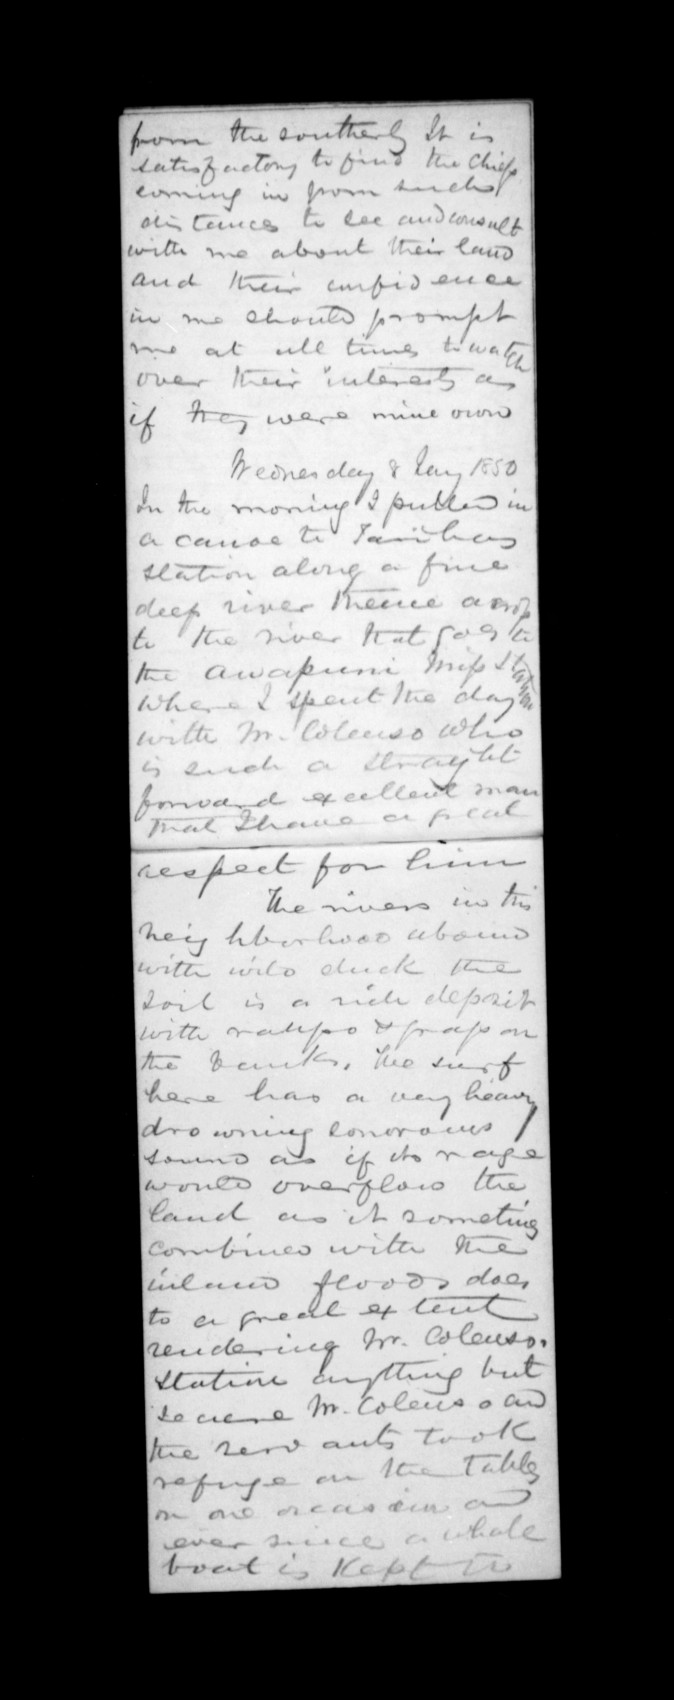 from the southerly It is
satisfactory to find the chiefs
coming in from such
distances to see and consult
with me about their land
and their confidence
in me should prompt
me at all times to watch
over their interests as
if they were mine own
Wednesday 8 Jany 1850
In the morning I pulled in
a canoe to
station along a fine
deep river thence across
to the river that goes to
the Awapuni Miss Station
where I spent the day
with Mr. Colenso who
is such a straight
forward excellent man
that I have a great
respect for him
The rivers in this
neighborhood abound
with wild duck the
soil is a rich deposit
with raupo & grass on
the banks. The surf
here has a very heavy
drowning sonorous
sound as if its rage
would overflow the
land as it something
combined with the
inland floods does
to a great extent
rendering Mr. Colenso.
station anything but
secure Mr. Colenso and
the servants took
refuge on the tables
on one occasion and
ever since a whale
boat is kept to